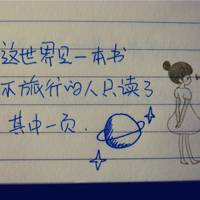 这世界是一本书
不旅行的人只读了
其中一页.